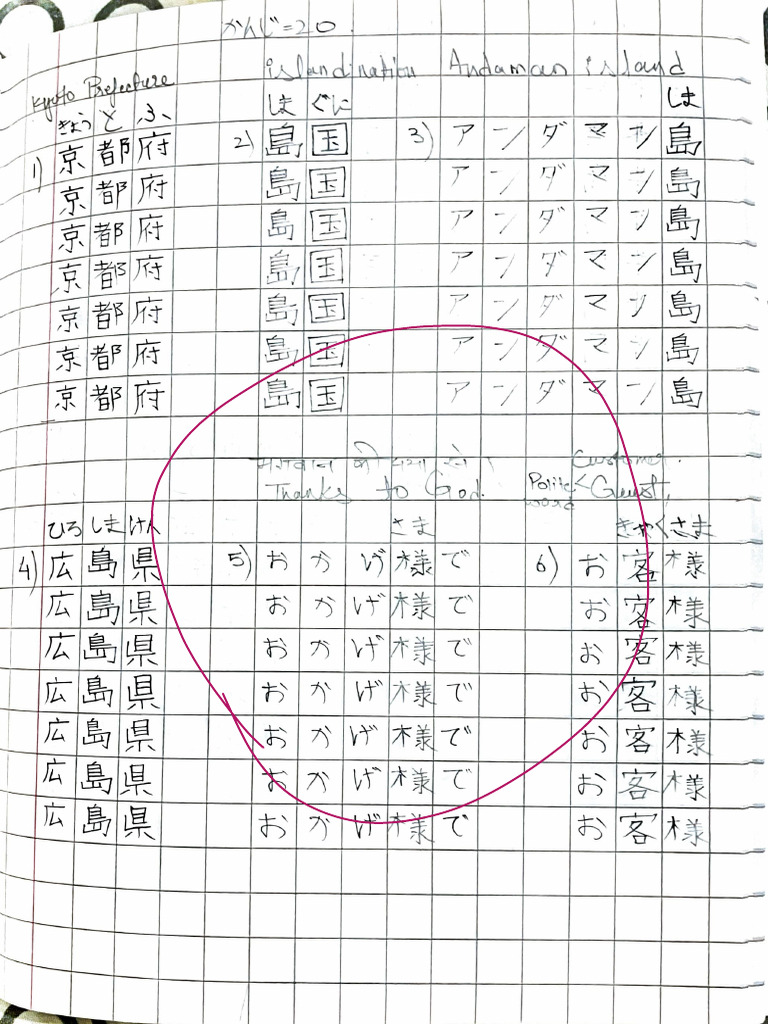 かんじ=20.
Kyoto Prefecture
islandination Andaman island
きょうとふ しまぐに しま
1) 京都府 2) 島国 3) アンダマン島
京都府 島国 アンダマン島
京都府 島国 アンダマン島
京都府 島国 アンダマン島
京都府 島国 アンダマン島
京都府 島国 アンダマン島
京都府 島国 アンダマン島
Customer.
Thanks to God. Polite word < Guest,
ひろしまけん さま きゃくさま
4) 広島県 5) おかげ様で 6) お客様
広島県 おかげ様で お客様
広島県 おかげ様で お客様
広島県 おかげ様で お客様
広島県 おかげ様で お客様
広島県 おかげ様で お客様
広島県 おかげ様で お客様